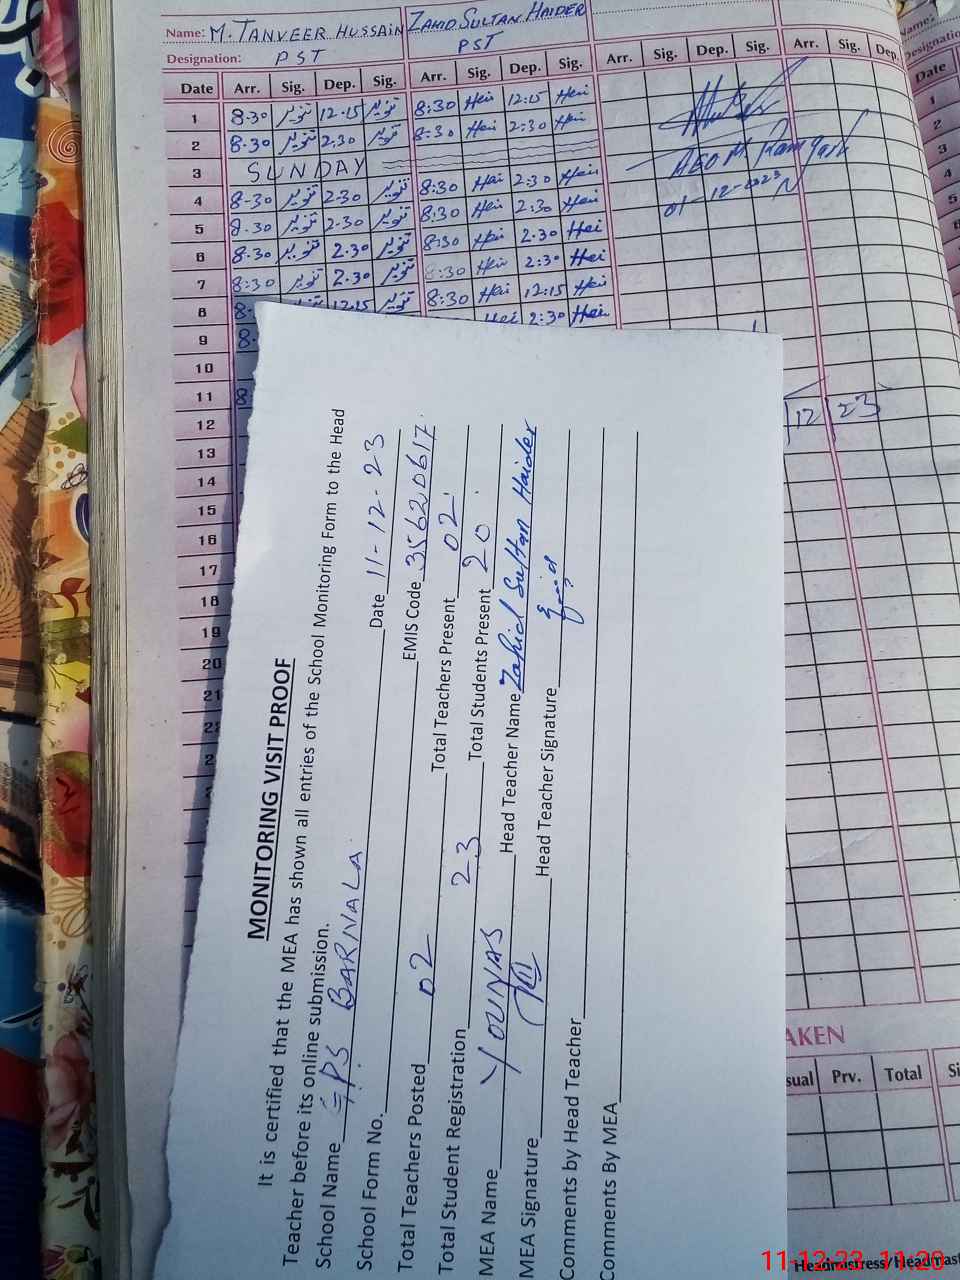 Name: M. TANVEER HUSSAIN ZAHID SULTAN HAIDER
Designation: PST PST
Date Arr. Sig. Dep. Sig. Arr. Sig. Dep. Sig. Arr. Sig. Dep. Sig. Arr. Sig. Dep.
1 8-30 تنویر 12-15 تنویر 8:30 Hai 12:15 Hai
2 8-30 تنویر 2.30 تنویر 8:30 Hai 2:30 Hai
3 SUNDAY
4 8-30 تنویر 2-30 تنویر 8:30 Hai 2:30 Hai
5 8-30 تنویر 2-30 تنویر 8:30 Hai 2:30 Hai
6 8-30 تنویر 2.30 تنویر 8:30 Hai 2:30 Hai
7 8:30 تنویر 2.30 تنویر 8:30 Hai 2:30 Hai
8 8- تنویر 12.15 تنویر 8:30 Hai 12:15 Hai
9 8- Hai 2:30 Hai
10
11 8
12
13
14
15
16
17
18
19
20
21
AEO M.
01-12-2023
12 23
Name:
Designatio
Date
1
2
3
4
5
6
MONITORING VISIT PROOF
It is certified that the MEA has shown all entries of the School Monitoring Form to the Head
Teacher before its online submission.
School Name GPS BARNALA Date 11-12-23
School Form No. EMIS Code 35620617
Total Teachers Posted 02 Total Teachers Present 02
Total Student Registration 23 Total Students Present 20
MEA Name YOUNAS Head Teacher Name Zahid Sultan Haider
MEA Signature Head Teacher Signature
Comments by Head Teacher
Comments By MEA
AKEN
sual Prv. Total Si
Headmistress/Headmast
11-12-23 11:20